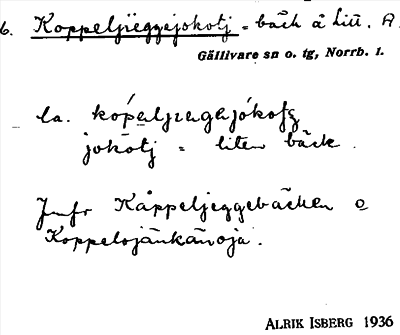 6. Koppeljeggejokotj = bäck å Litt. A.
Gällivare sn o. tg, Norrb. l.
la. kópaljɛgɐjókoţ
jokotj = liten bäck.
Jmfr Kåppeljeggebäcken o
Koppelojänkänoja.
ALRIK ISBERG 1936